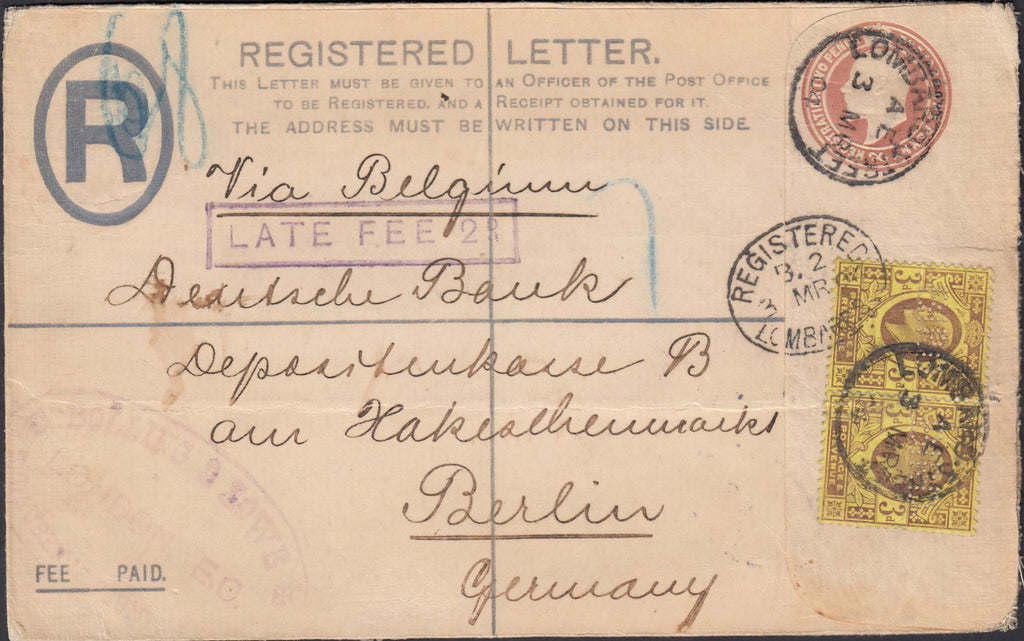 REGISTERED LETTER.
THIS LETTER MUST BE GIVEN TO AN OFFICER OF THE POST OFFICE
TO BE REGISTERED, AND A RECEIPT OBTAINED FOR IT.
THE ADDRESS MUST BE WRITTEN ON THIS SIDE
R
68
LOMBARD STREET
A
3 MR
Via Belgium
LATE FEE 2d
REGISTERED
3. 2
3 MR
LOMBARD
Deutsche Bank
Depositenkasse B
am Hakeschenmarkt
Berlin
Germany
3d
POSTAGE
REVENUE
3d
LONDON EC
FEE PAID.